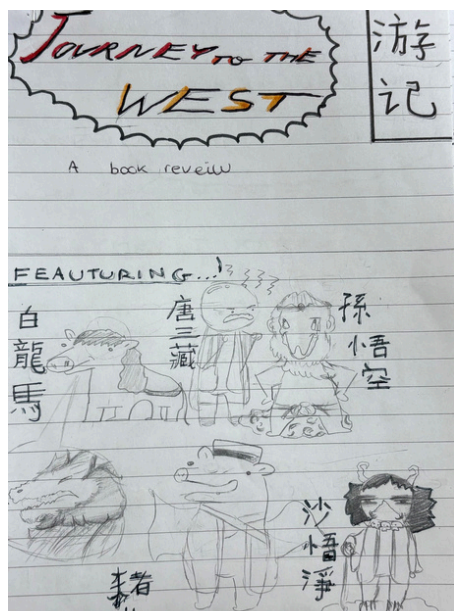 JOURNEY TO THE
WEST
游
记
A book reveiw
FEAUTURING...
白
龍
馬
唐
三
藏
孫
悟
空
沙
悟
淨